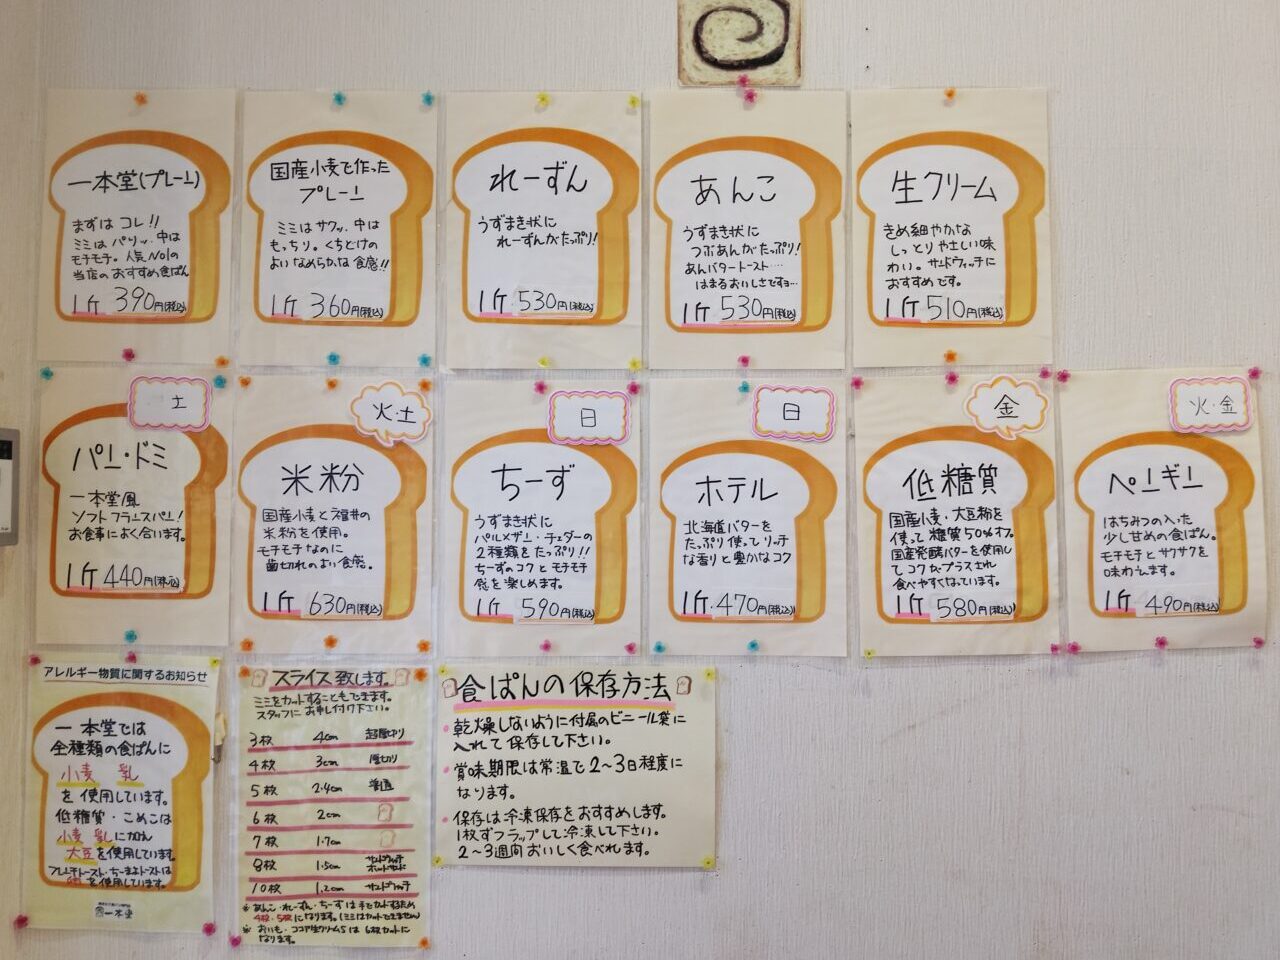 一本堂(プレーン)
まずは コレ!!
ミミは パリッ、中は
モチモチ。人気No1の
当店の おすすめ食ぱん
1斤 390円(税込)
国産小麦で作った
プレーン
ミミは サクッ、中は
もっちり。くちどけの
よい なめらかな 食感!!
1斤 360円(税込)
れーずん
うずまき状に
れーずんがたっぷり!
1斤 530円(税込)
あんこ
うずまき状に
つぶあんが たっぷり!
あんバタートースト....
はまるおいしさですョ...
1斤 530円(税込)
生クリーム
きめ細やかな
しっとりやさしい味
わい。サンドウィッチに
おすすめです。
1斤 510円(税込)
土
パン・ド・ミ
一本堂風
ソフトフランスパン!
お食事によく合います。
1斤 440円(税込)
火・土
米粉
国産小麦と福井の
米粉を使用。
モチモチなのに
歯切れのよい食感。
1斤 630円(税込)
日
ちーず
うずまき状に
パルメザン・チェダーの
2種類を たっぷり!!
ちーずのコクと モチモチ
感を楽しめます。
1斤 590円(税込)
日
ホテル
北海道バターを
たっぷり使って リッチ
な香りと豊かなコク
1斤 470円(税込)
金
低糖質
国産小麦・大豆粉を
使って 糖質50%オフ。
国産発酵バターを使用し
て コクがプラスされ
食べやすくなっています。
1斤 580円(税込)
火・金
ペンギン
はちみつの入った
少し甘めの食ぱん。
モチモチと サクサクを
味わえます。
1斤 490円(税込)
アレルギー物質に関するお知らせ
一本堂では
全種類の食ぱんに
小麦 乳
を 使用しています。
低糖質・こめこは
小麦 乳に加え
大豆を使用しています。
フレンチトースト・ちーずトーストは
を使用しています。
一本堂
スライス致します。
ミミをカットすることもできます。
スタッフに お申し付け下さい。
3枚 4cm 超厚切り
4枚 3cm 厚切り
5枚 2.4cm 普通
6枚 2cm
7枚 1.7cm
8枚 1.5cm サンドウィッチ ホットサンド
10枚 1.2cm サンドウィッチ
※ あんこ・れーずん・ちーずは手でカットするため
4枚・5枚になります。(ミミはカットできません)
※ おいも・ココア生クリームは 6枚カットに
なります。
食ぱんの保存方法
乾燥しないように付属のビニール袋に
入れて保存して下さい。
賞味期限は常温で2〜3日程度に
なります。
保存は冷凍保存をおすすめします。
1枚ずつラップして冷凍して下さい。
2〜3週間おいしく食べれます。